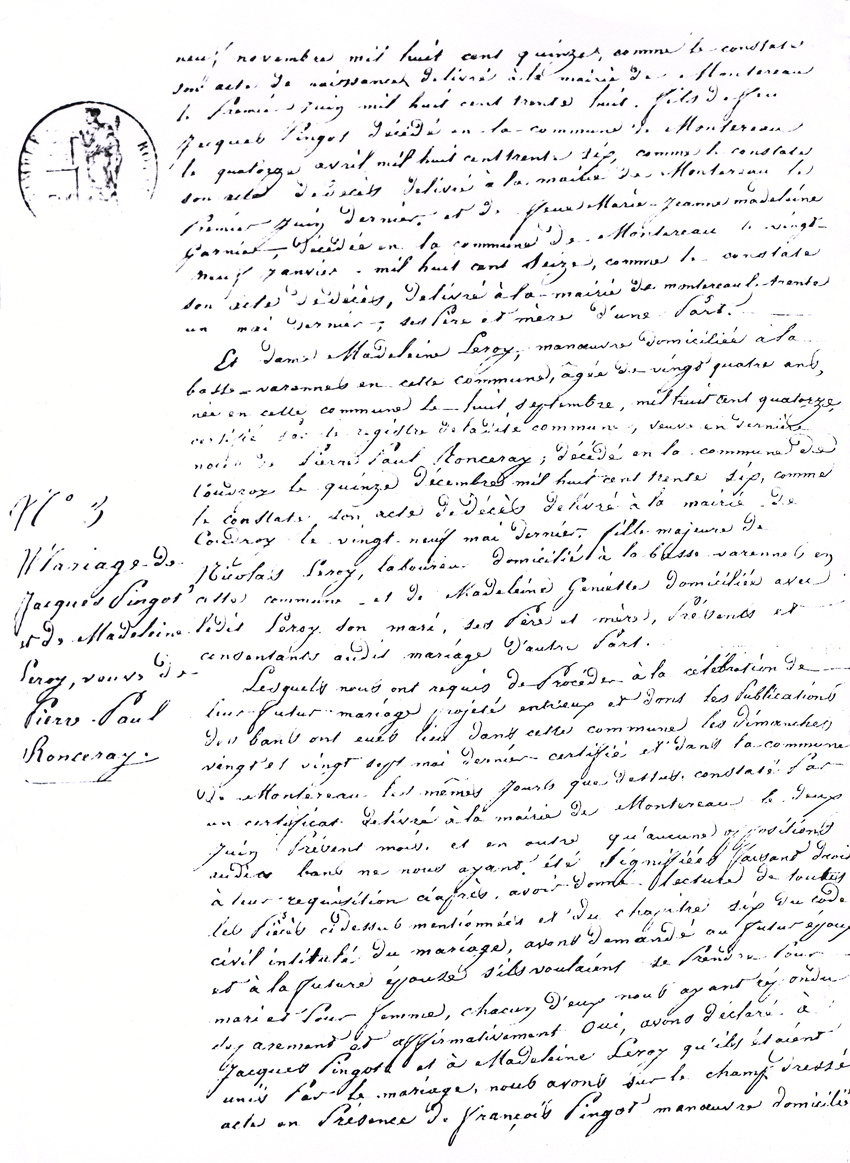 neuf novembre mil huit cent quinze, comme le constate
son acte de naissance délivré à la mairie de Montereau
le Premier Juin mil huit cent trente huit. fils de feu
Jacques Pingot décédé en la commune de Montereau
le quatorze avril mil huit cent trente six, comme le constate
son acte de décès délivré à la mairie de Montereau le
Premier Juin dernier, et de feue Marie-Jeanne madeleine
Garnier, décédée en la commune de Montereau le vingt-
neuf Janvier mil huit cent Seize, comme le constate
son acte de décès, délivré à la mairie de montereau le trente
un mai dernier, ses Père et mère d'une Part.
Et dame Madeleine Leroy, manœuvre domiciliée à la
basse-varennes en cette commune, âgée de vingt quatre ans,
née en cette commune le huit septembre, mil huit cent quatorze,
certifié par le registre de ladite commune, veuve en dernière
noces de Pierre Paul Ronceray, décédé en la commune de
Coudroy le quinze décembre mil huit cent trente six, comme
le constate son acte de décès délivré à la mairie de
Coudroy le vingt-neuf mai dernier. fille majeure de
Nicolas Leroy, laboureur domicilié à la basse varennes en
cette commune et de Madeleine Geniette domiciliée avec
ledit Leroy son mari, ses Père et mère, Présents et
consentants audit mariage d'autre Part.
Lesquels nous ont requis de Procéder à la célébration de
leur futur mariage projeté entr'eux et dont les Publications
des bans ont eues lieu dans cette commune les dimanches
vingt et vingt sept mai dernier certifié et dans la commune
de Montereau les mêmes Jours que dessus, constaté Par
un certificat délivré à la mairie de Montereau le deux
Juin Présent mois. et en outre qu'aucune oppositions
audits bans ne nous ayant été Signifiées faisant droit
à leur requisition ciaprès, avoir donné lecture de toutes
les Pièces cidessus mentionnées et du chapitre six du code
civil intitulé du mariage, avons demandé au futur époux
et à la future épouse s'ils voulaient se Prendre Pour
mari et Pour femme, chacun d'eux nous ayant répondu
séparement et affirmativement Oui, avons déclaré à
Jacques Pingot et à Madeleine Leroy qu'ils étaient
unis Par le mariage, nous avons sur le champ dressé
acte en Présence de François Pingot manœuvre domicilié
N° 3
Mariage de
Jacques Pingot
et de Madeleine
Leroy, veuve de
Pierre-Paul
Ronceray.